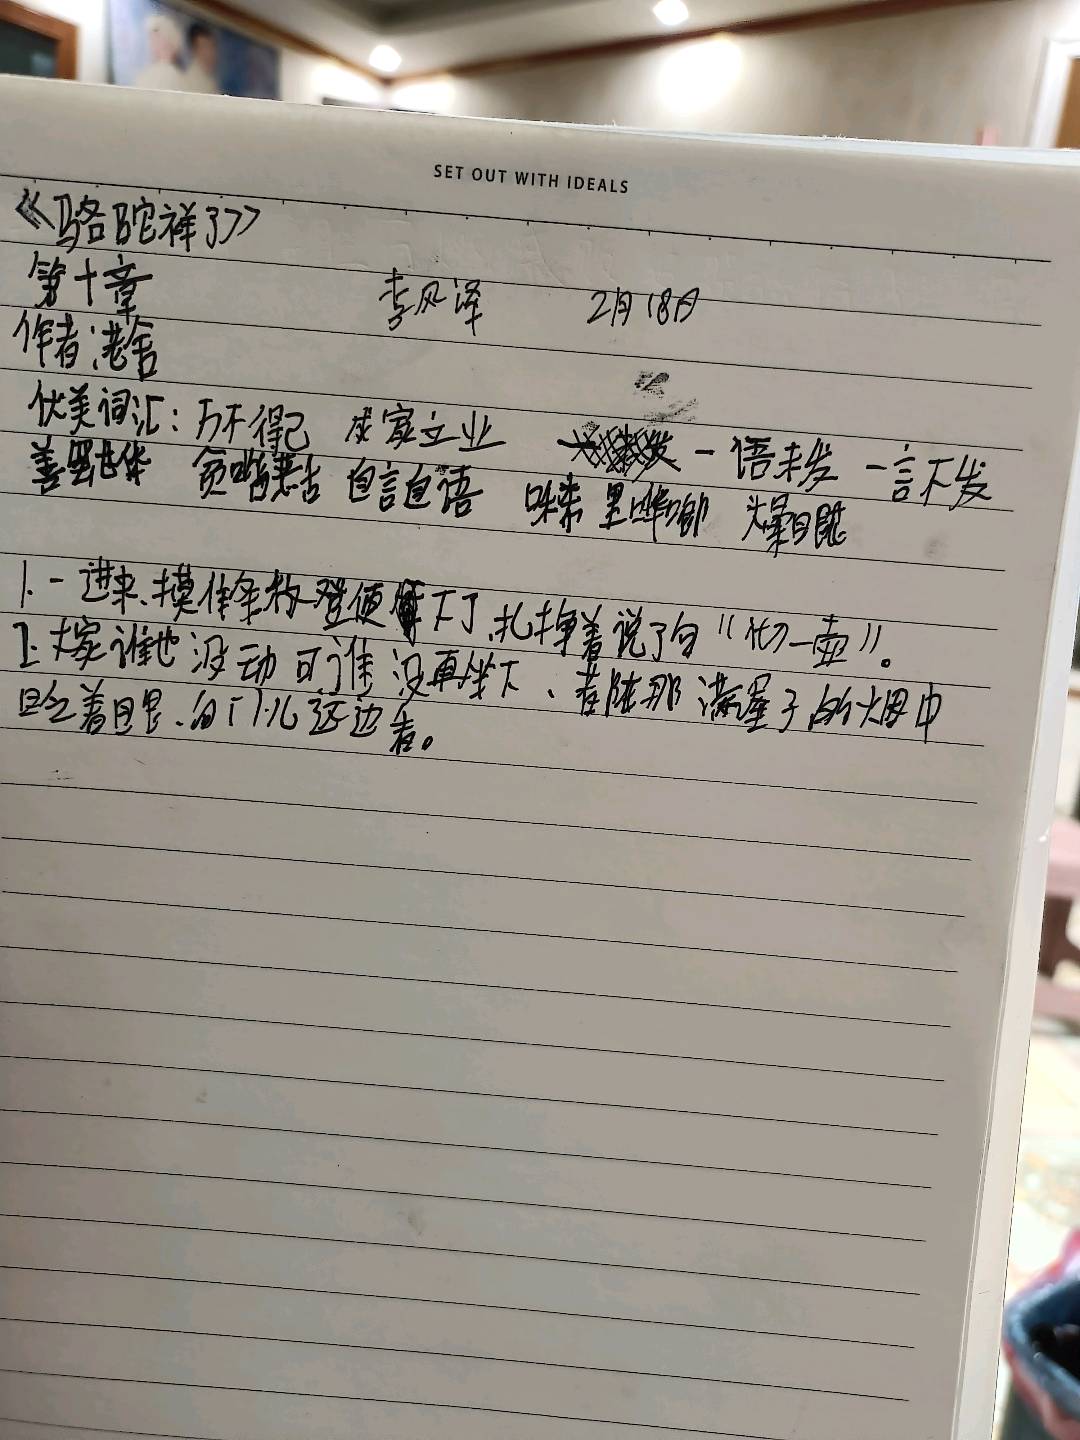 SET OUT WITH IDEALS
《骆驼祥子》
第十章 李风泽 2月18日
作者:老舍
优美词汇: 万不得已 成家立业 一语未发 一言不发
贫嘴恶舌 自言自语 味素 里唧 爆眼
1.一进来、摸住条板凳便下了、扎挣着说了句“沏一壶”。
2.大家谁也没动可谁没再坐下、都在那满屋子的烟中
眨着眼、向门儿这边看。